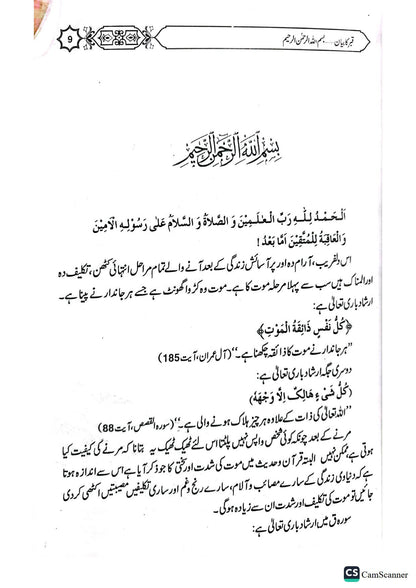 9
قبر کا بیان ..... بسم اللہ الرحمٰن الرحیم
بِسْمِ اللّٰهِ الرَّحْمٰنِ الرَّحِيْمِ
اَلْحَمْدُ لِلّٰهِ رَبِّ الْعٰلَمِيْنَ وَ الصَّلَاةُ وَ السَّلَامُ عَلٰى رَسُوْلِهِ الْاَمِيْنَ
وَالْعَاقِبَةُ لِلْمُتَّقِيْنَ اَمَّا بَعْدُ !
اس دلفریب، آرام دہ اور پر آسائش زندگی کے بعد آنے والے تمام مراحل انتہائی کٹھن، تکلیف دہ
اور المناک ہیں سب سے پہلا مرحلہ موت کا ہے۔ موت وہ کڑوا گھونٹ ہے جسے ہر جاندار نے پینا ہے۔
ارشاد باری تعالیٰ ہے:
﴿كُلُّ نَفْسٍ ذَائِقَةُ الْمَوْتِ﴾
”ہر جاندار نے موت کا ذائقہ چکھنا ہے۔“ (آل عمران، آیت 185)
دوسری جگہ ارشاد باری تعالیٰ ہے:
﴿كُلُّ شَىْءٍ هَالِكٌ اِلَّا وَجْهَهٗ﴾
”اللہ تعالیٰ کی ذات کے علاوہ ہر چیز ہلاک ہونے والی ہے۔“ (سورہ القصص، آیت 88)
مرنے کے بعد چونکہ کوئی شخص واپس نہیں پلٹتا اس لئے ٹھیک ٹھیک یہ بتانا کہ مرنے کی کیفیت کیا
ہوتی ہے، ممکن نہیں البتہ قرآن و حدیث میں موت کی شدت اور سختی کا جو ذکر آیا ہے اس سے اندازہ ہوتا
ہے کہ دنیاوی زندگی کے سارے مصائب و آلام، سارے رنج و غم اور ساری تکلیفیں مصیبتیں اکٹھی کردی
جائیں تو موت کی تکلیف اور شدت ان سے زیادہ ہوگی۔
سورہ ق میں ارشاد باری تعالیٰ ہے:
CS CamScanner